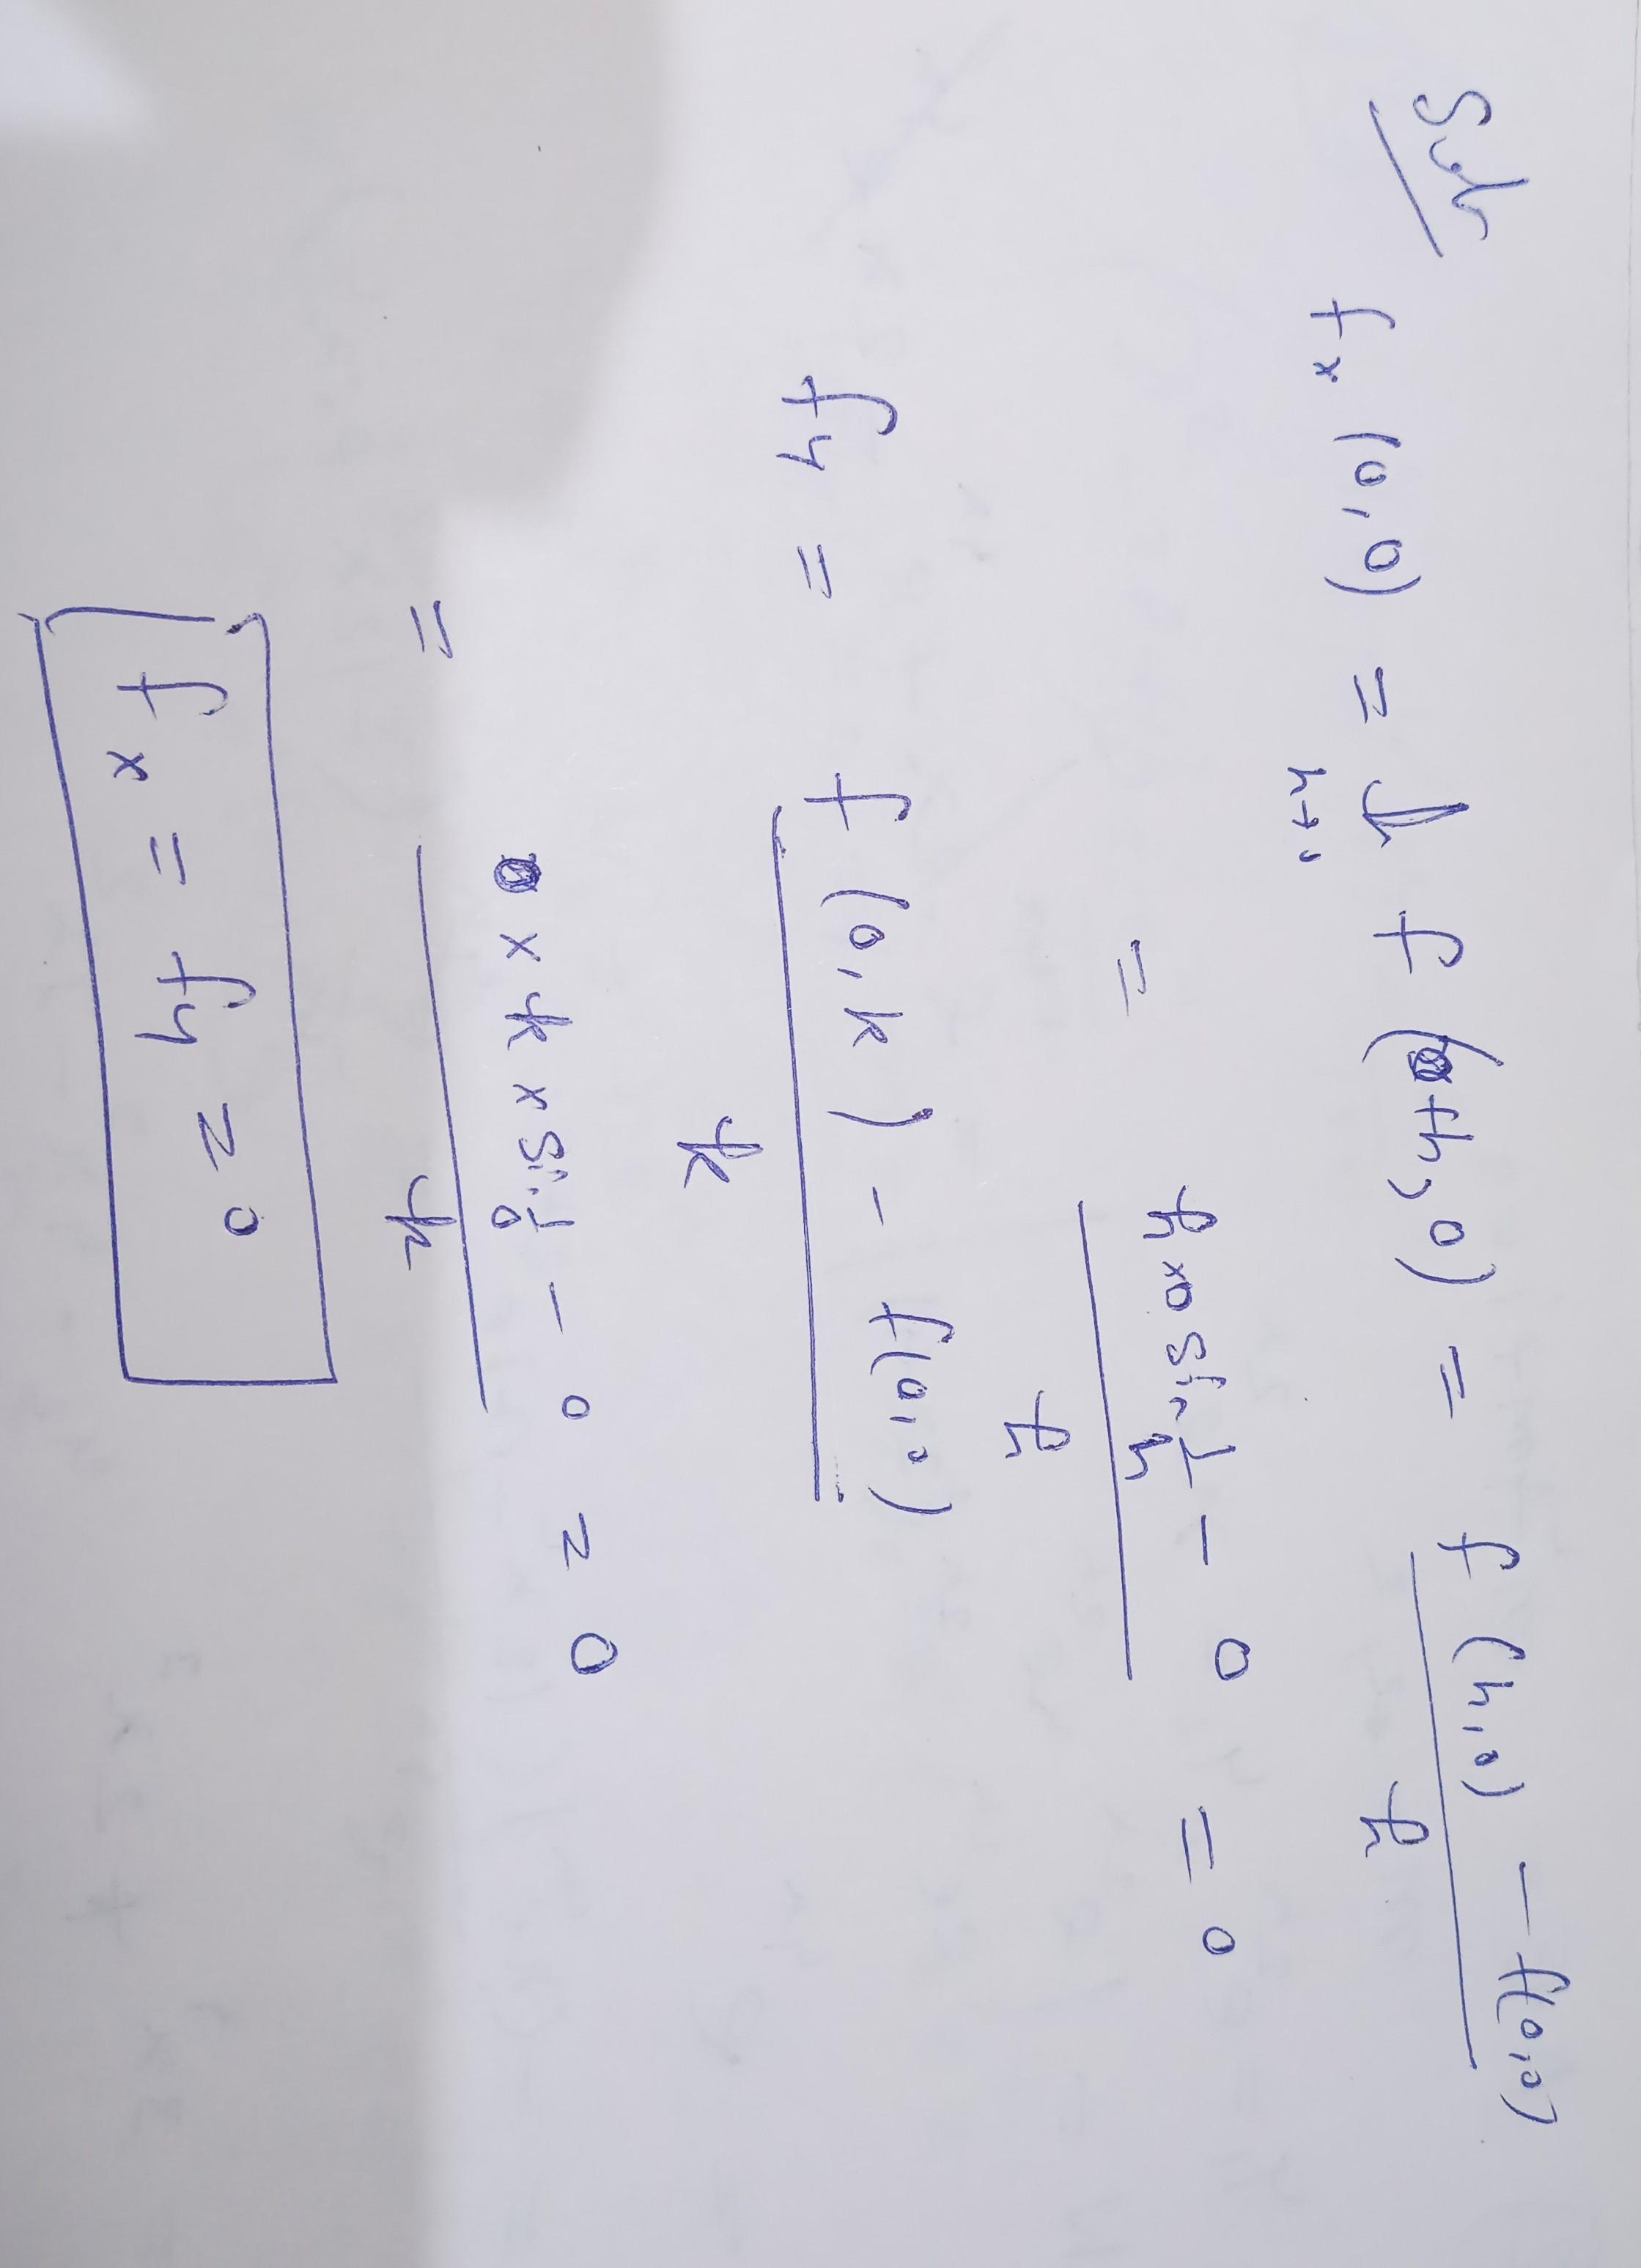 Soln
fx (0,0) = lt h→0 f (0+h, 0) = f (h,0) - f(0,0) / h
= h x 0 sin 1/h - 0 / h = 0
fy = f (0,k) - f(0,0) / k
= 0 x k x sin 1/0 - 0 / k = 0
fx = fy = 0